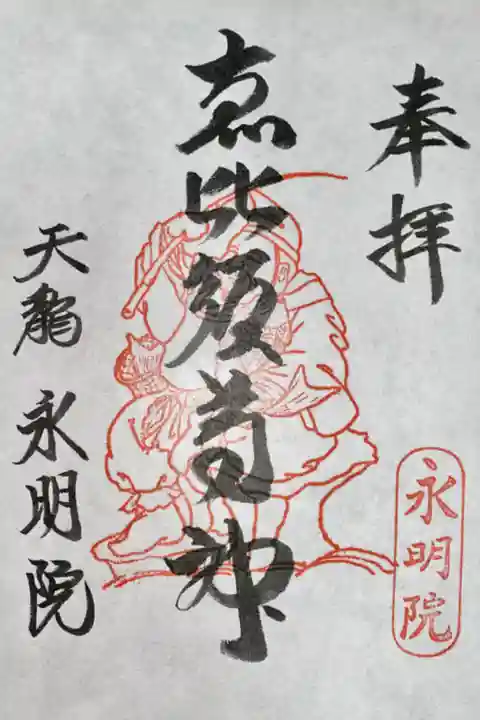 奉拝
永明院
惠比須尊神
天龍 永明院